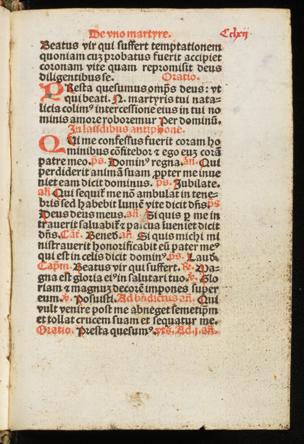 De vno martyre. Cclxii
Beatus vir qui suffert temptationem
quoniam cuz probatus fuerit accipiet
coronam vite quam repromisit deus
diligentibus se. Oratio.
Presta quesumus omps deus: vt
qui beati. N. martyris tui nata-
licia colim⁹ intercessione eius in tui no
minis amore roboremur Per dominū.
In laudibus antiphone.
Qui me confessus fuerit coram ho
minibus cōfitebor ⁊ ego euz corā
patre meo. ps. Domin⁹ regna. añ. Qui
perdiderit animā suam ꝓpter me inue
niet eam dicit dominus. ps. Jubilate.
añ Qui sequit̄ me nō ambulat in tene-
bris sed habebit lumē vite dicit dñs ps
Deus deus meus. añ. Si quis ꝑ me in
trauerit saluabit̄ ⁊ pascua iueniet dicit
dñs. Cāt. Bened. añ. Si quis michi mi
nistrauerit honorificabit eū pater me⁹
qui est in celis dicit domin⁹. ps. Laud.
Capm. Beatus vir qui suffert. ℟. Ma-
gna est gloria ei⁹ in salutari tuo. ℣. Glo
riam ⁊ magnuz decorē impones super
eum. ℣. Posuisti. Ad bñdictus añ. Qui
vult venire post me abneget semetipm̄
et tollat crucem suam et sequatur me.
Oratio. Presta quesum⁹.